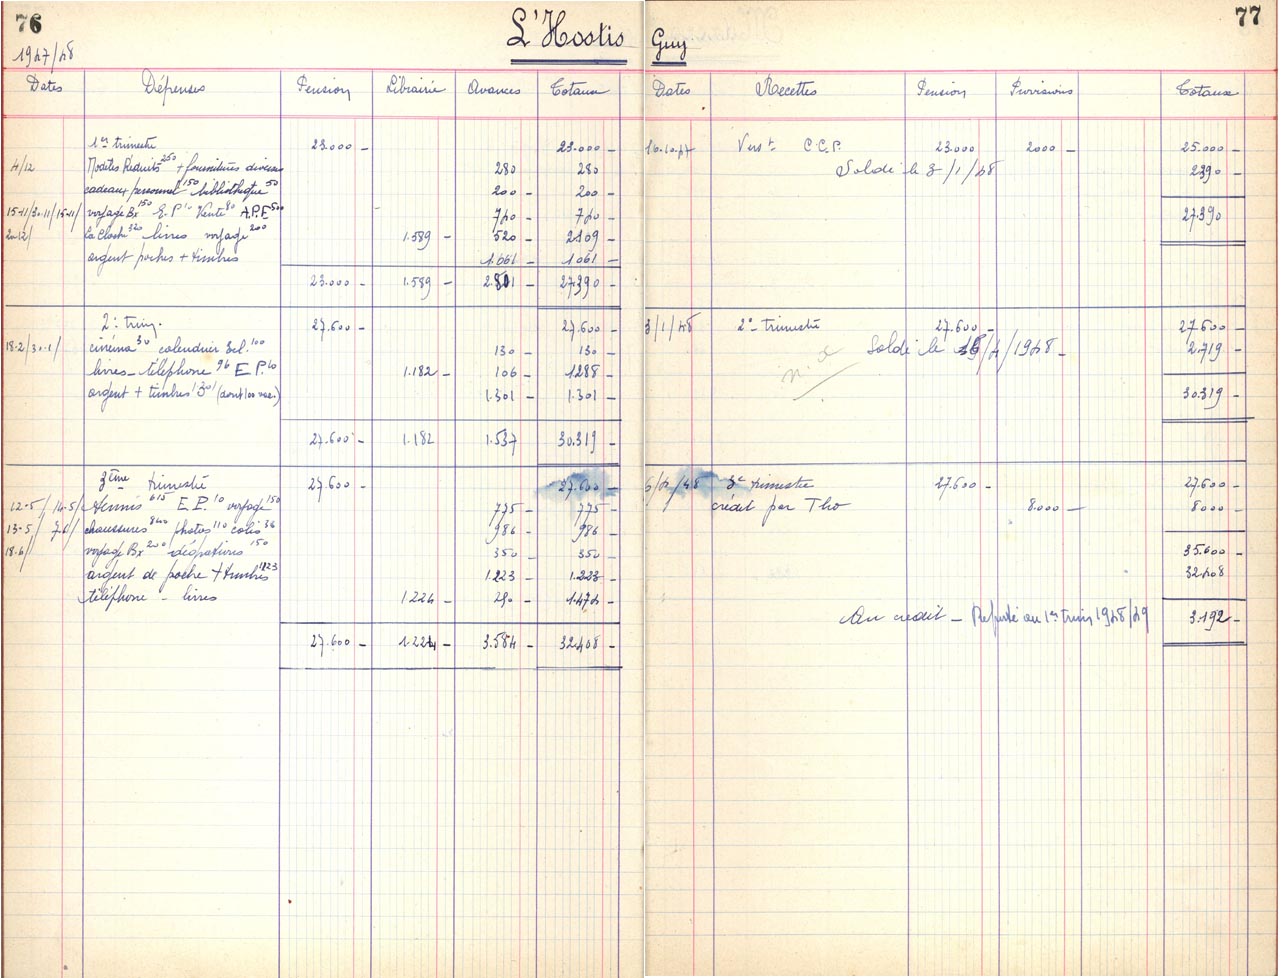 76
L'Hostis Guy
77
1947/48
Dates Dépenses Pension Librairie Avances Totaux Dates Recettes Pension Provisions Totaux
1er trimestre 23.000 - 23.000 - 16.10.47 Verst C.C.P. 23.000 2000 - 25.000 -
4/12 Modèles Réduits 250 + fournitures diverses 280 280 - Soldé le 3/1/48 2390 -
cadeaux personnel 150 bibliothèque 50 200 - 200 -
15-11/30-11/15-11/ voyage Bx 150 E.P 10 Vente 80 A.P.E 500 740 - 740 - 27.390
20-12/ la Cloche 320 livres voyage 200 1.589 - 520 - 2109 -
argent poches + timbres 1.061 - 1061 -
23.000 - 1.589 - 2.801 - 27390 -
2e trim. 27.600 - 27.600 - 3/1/48 2e trimestre 27.600 - 27.600 -
18-2/30-1/ cinéma 30 calendrier Scl. 100 130 - 130 - Soldé le 15/4/1948 - 2.719 -
livres - téléphone 96 E P. 10 1.182 - 106 - 1288 -
argent + timbres 1301 (dont 100 vac.) 1.301 - 1.301 - 30.319 -
27.600 - 1.182 1.537 - 30.319 -
3ème trimestre 27.600 - 27.600 - 6/4/48 3e trimestre 27.600 - 27.600 -
12-5/14-5/ tennis 615 E.P. 10 voyage 150 775 - 775 - crédit par Tho 8.000 - 8000 -
13-5/ 7-6/ chaussures 840 photos 110 colis 36 986 - 986 -
18.6/ voyage Bx 200 150 350 - 350 - 35.600 -
argent de poche + timbres 1223 1223 - 1.223 - 32408
téléphone - livres 1224 - 250 - 1.474 -
Au crédit - Reporté au 1er trim 1948/49 3.192 -
27.600 - 1.224 - 3.584 - 32.408 -